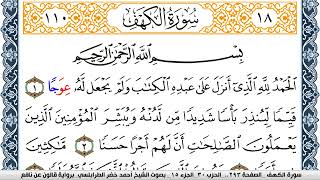 ١١٠ سورة الكهف ١٨
بِسْمِ اللَّهِ الرَّحْمَٰنِ الرَّحِيمِ
الْحَمْدُ لِلَّهِ الَّذِي أَنزَلَ عَلَىٰ عَبْدِهِ الْكِتَٰبَ وَلَمْ يَجْعَل لَّهُ عِوَجًا ١
قَيِّمًا لِّيُنذِرَ بَأْسًا شَدِيدًا مِّن لَّدُنْهُ وَيُبَشِّرَ الْمُؤْمِنِينَ الَّذِينَ
يَعْمَلُونَ الصَّٰلِحَٰتِ أَنَّ لَهُمْ أَجْرًا حَسَنًا ٢ مَّٰكِثِينَ
سورة الكهف .. صفحة ٢٩٣ .. الحزب ٣٠ .. الجزء ١٥ .. بصوت الشيخ أحمد خضر الطرابلسي .. برواية قالون عن نافع